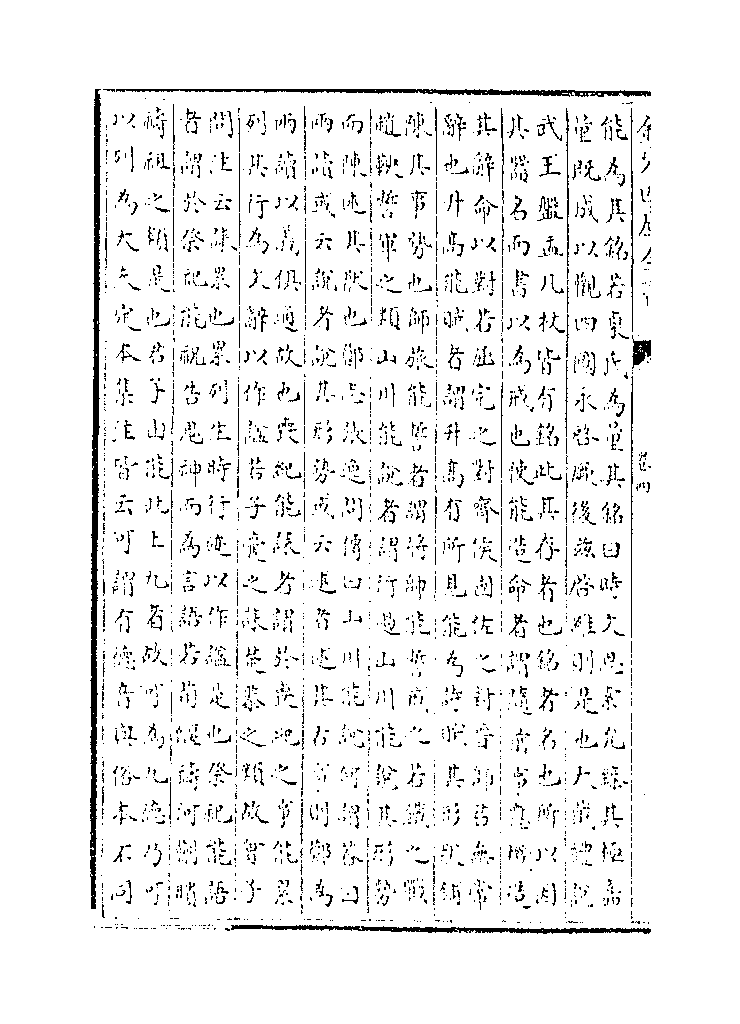 欽定四庫全書
卷四
能為其銘若㮚氏為量其銘曰時文思索允臻其極嘉
量既成以觀四國永啓厥後茲器維則是也大戴禮說
武王盤盂几杖皆有銘此其存者也銘者名也所以因
其器名而書以為戒也使能造命者謂隨前事應機造
其辭命以對若屈完之對齊侯國佐之對晉師君無常
辭也升高能賦者謂升高有所見能為詩賦其形狀鋪
陳其事勢也師旅能誓者謂將帥能誓戒之若鐵之戰
趙鞅誓軍之類山川能說者謂行過山川能說其形勢
而陳述其狀也鄭志張逸問傳曰山川能說何謂答曰
兩讀或云說者說其形勢或云述者述其古事則鄭為
兩讀以義俱通故也喪紀能誄者謂於喪紀之事能累
列其行為文辭以作諡若子囊之誄楚恭之類故曾子
問注云誄累也累列生時行迹以作諡是也祭祀能語
者謂於祭祀能祝告鬼神而為言語若荀偃禱河蒯聵
禱祖之類是也君子由能此上九者故可為九德乃可
以列為大夫定本集注皆云可謂有德音與俗本不同